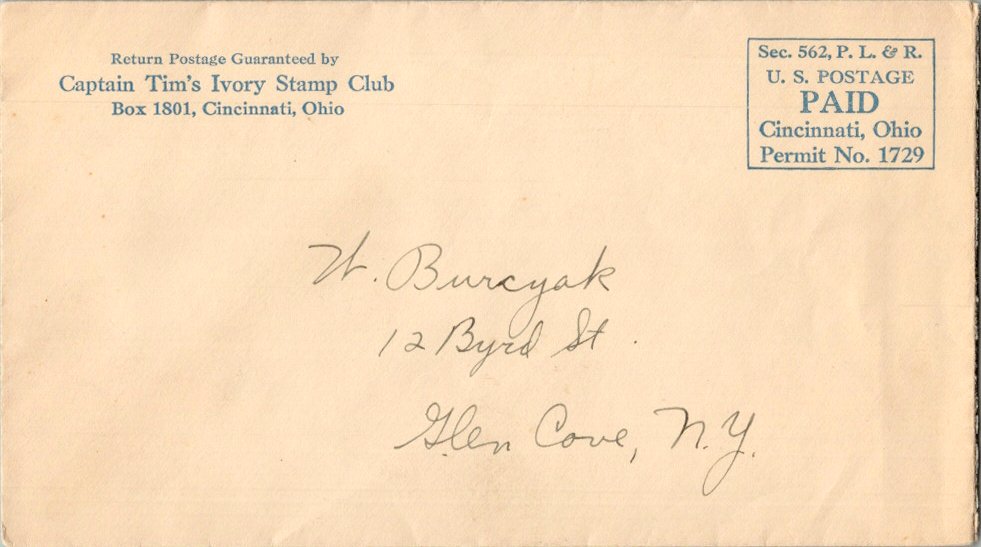 Return Postage Guaranteed by
Captain Tim's Ivory Stamp Club
Box 1801, Cincinnati, Ohio
Sec. 562, P. L. & R.
U. S. POSTAGE
PAID
Cincinnati, Ohio
Permit No. 1729
W. Burcyak
12 Byrd St.
Glen Cove, N.Y.